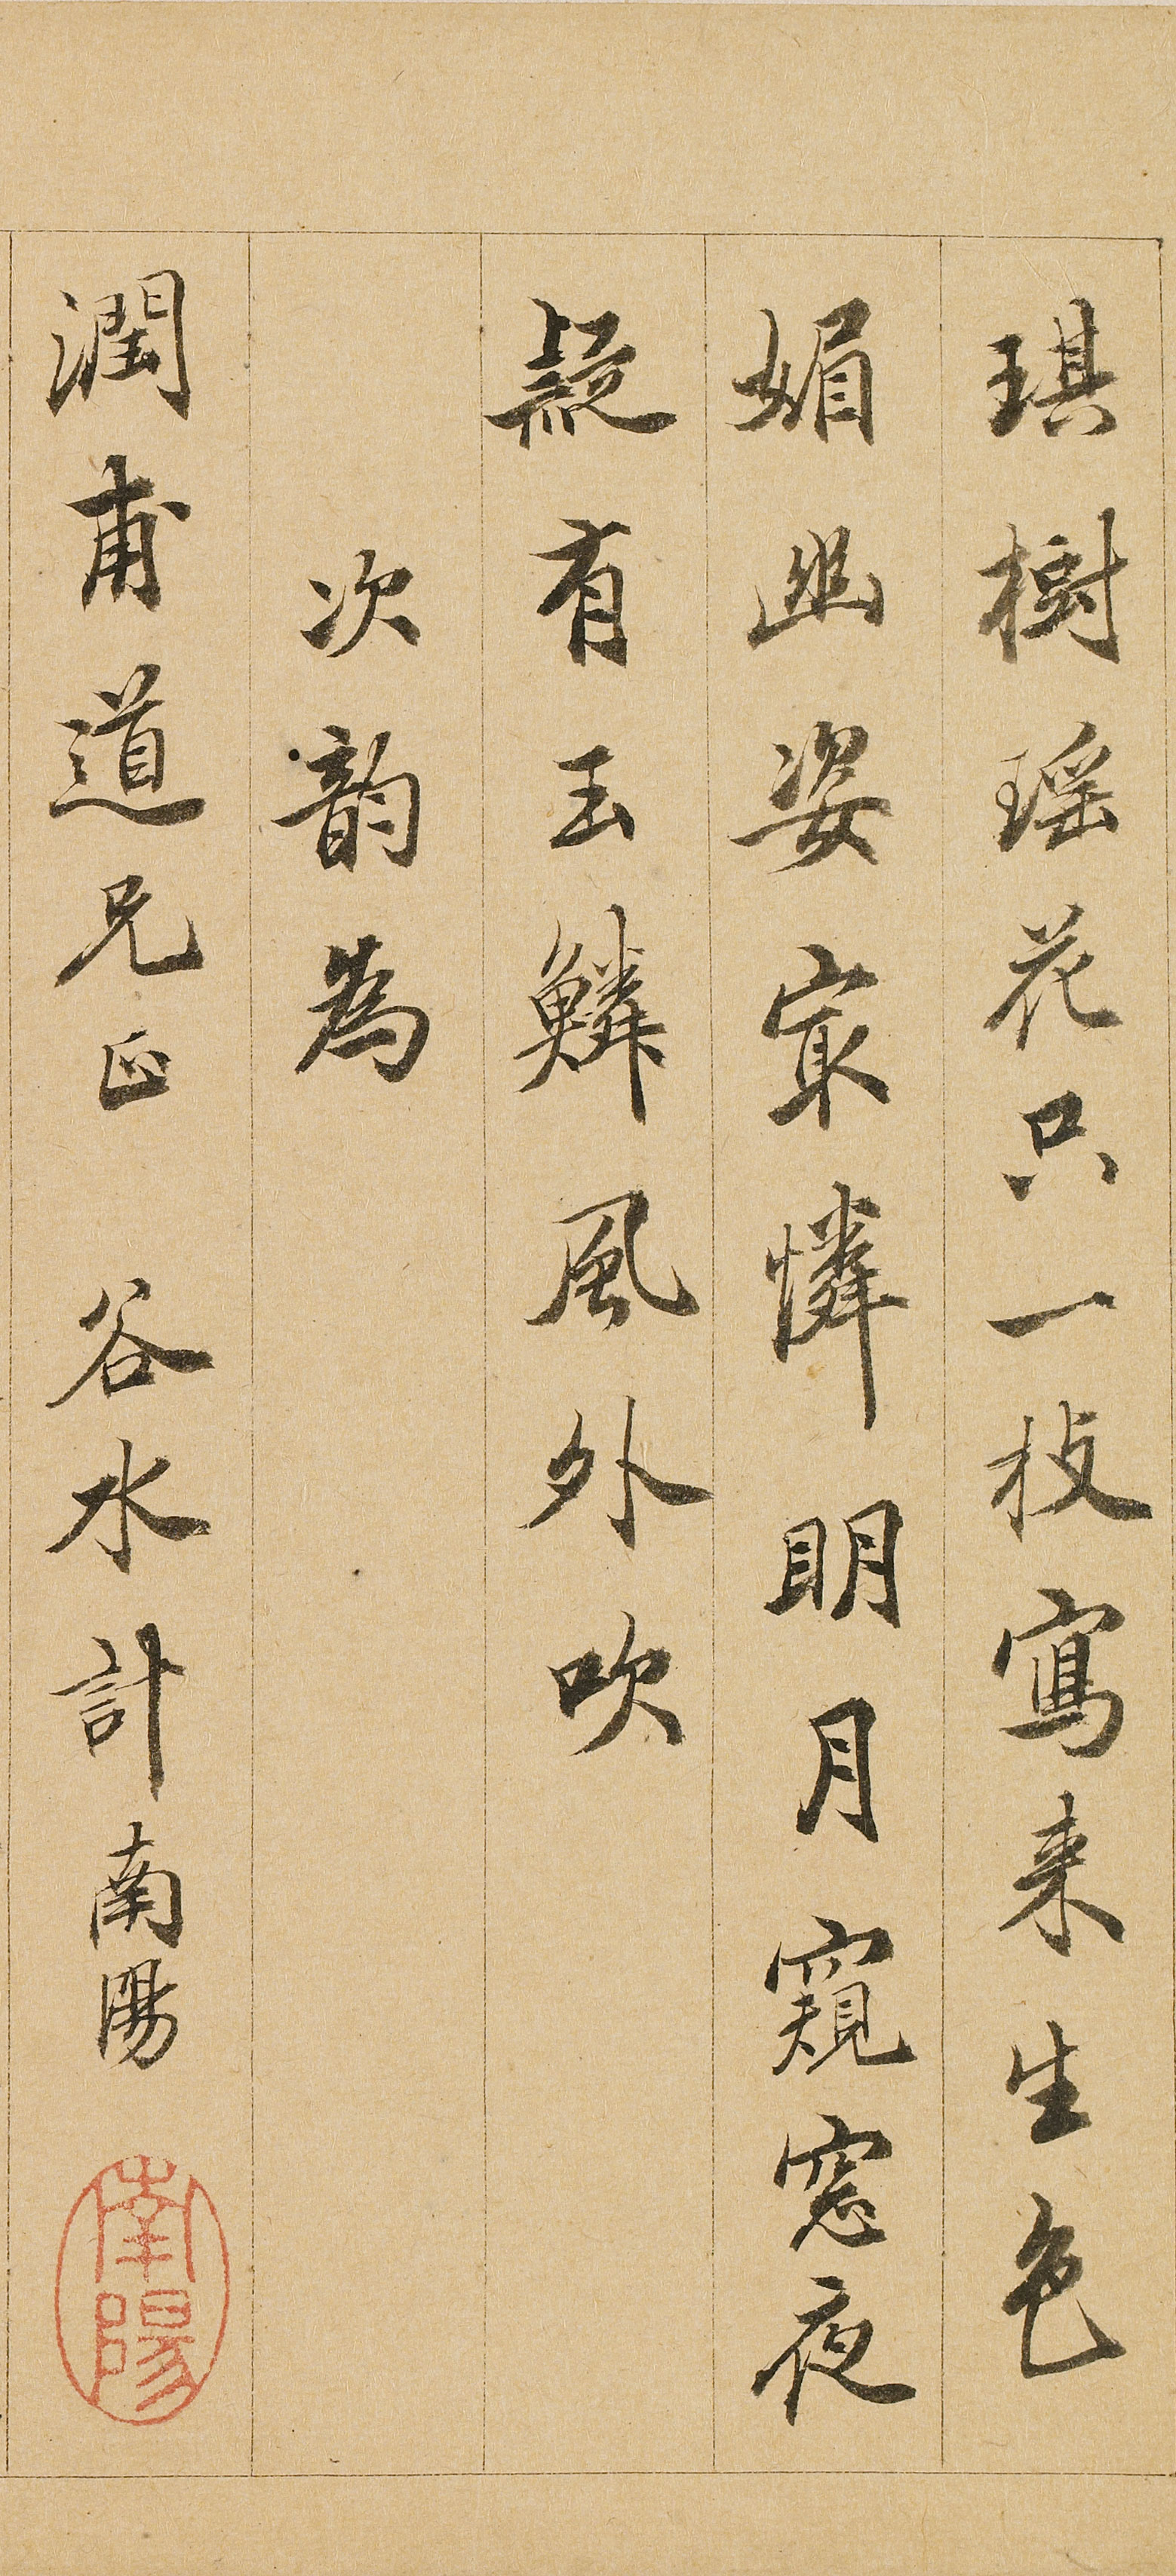 琪樹瑤花只一枝寫来生色
媚幽姿冣憐明月窺窓夜
疑有玉鱗風外吹
次韵為
潤甫道兄正 谷水計南陽
南陽